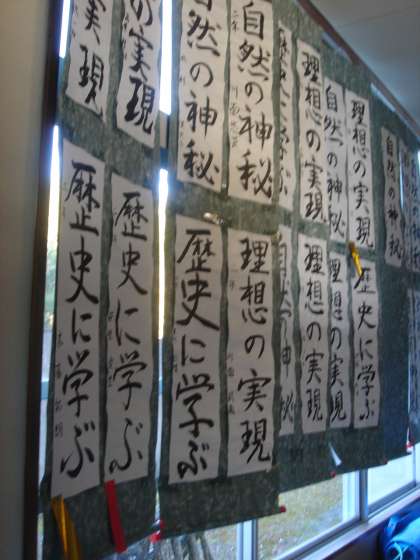 実現
の実現
自然の神秘
自然の神秘
歴史に学ぶ
理想の実現
自然の神秘
理想の実現
自然の神秘
歴史に学ぶ
歴史に学ぶ
歴史に学ぶ
理想の実現
自然の神秘
理想の実現
理想の実現
歴史に学ぶ